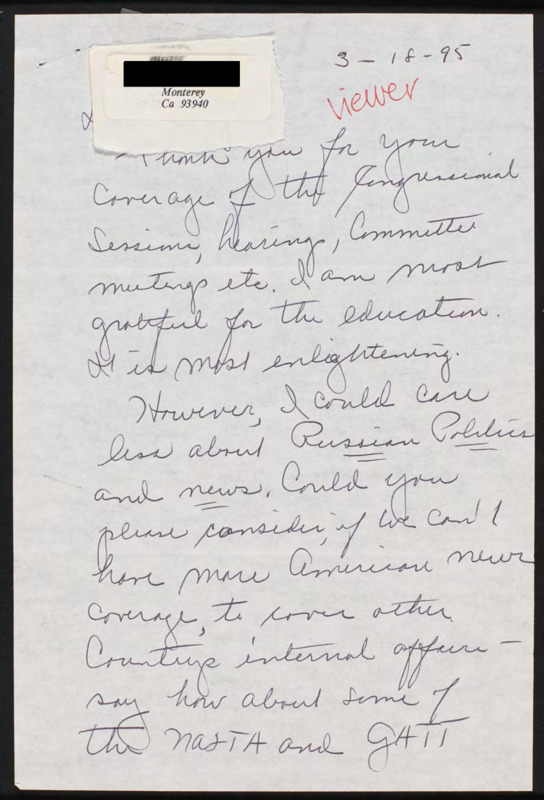 3-18-95
Monterey
Ca 93940
viewer
Thank you for your
Coverage of the Congressional
Sessions, hearings, Committee
meetings etc. I am most
grateful for the education.
It is most enlightening.
However, I could care
less about Russian Politics
and news. Could you
please consider, if we can't
have more American news
coverage, to cover other
Countrys internal affairs -
say how about some of
the NAFTA and GATT